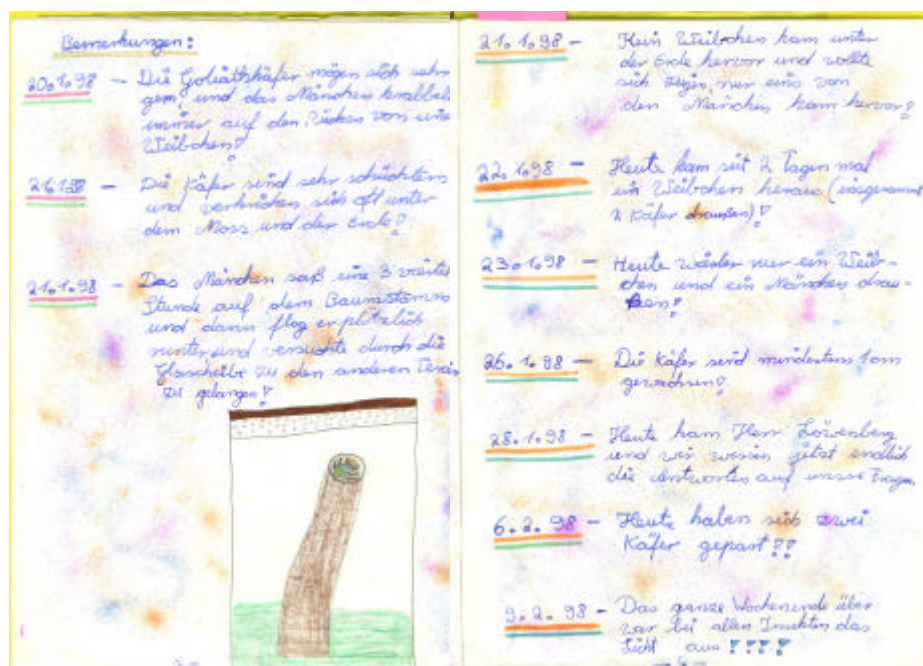 Bemerkungen:
20.1.98 - Die Goliathkäfer mögen sich sehr
gern, und das Mänchen krabbelt
immer auf den Rücken von
Weibchen!
21.1.98 - Die Käfer sind sehr schüchtern
und verkrichen sich oft unter
dem Moss und der Erde!
21.1.98 - Das Mänchen saß eine 3 viertel
Stunde auf dem Baumstamm
und dann flog er plötzlich
runter und versuchte durch die
Glasscheibe zu den anderen
zu gelangen!
21.1.98 - Kein Weibchen kam unter
der Erde hervor und wollte
sich zeigen, nur eins von
den Mänchen kam hervor!
22.1.98 - Heute kam seit 2 Tagen mal
ein Weibchen heraus (insgesamt
2 Käfer draußen)!
23.1.98 - Heute wieder nur ein Weib-
chen und ein Mänchen drau-
ßen!
26.1.98 - Die Käfer sind mindestens 1cm
gewachsen!
28.1.98 - Heute kam Herr Löwenberg
und wir wissen jetzt endlich
die Antworten auf unsere Fragen
6.2.98 - Heute haben sich zwei
Käfer gepart!!
9.2.98 - Das ganze Wochenende über
war bei allen Insekten das
Licht aus !!!!